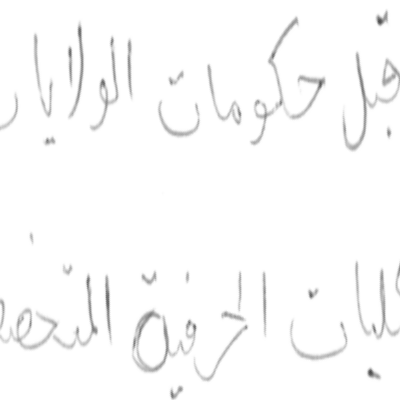 قبل حكومات الولايات
كليات الحرفية المتخصص